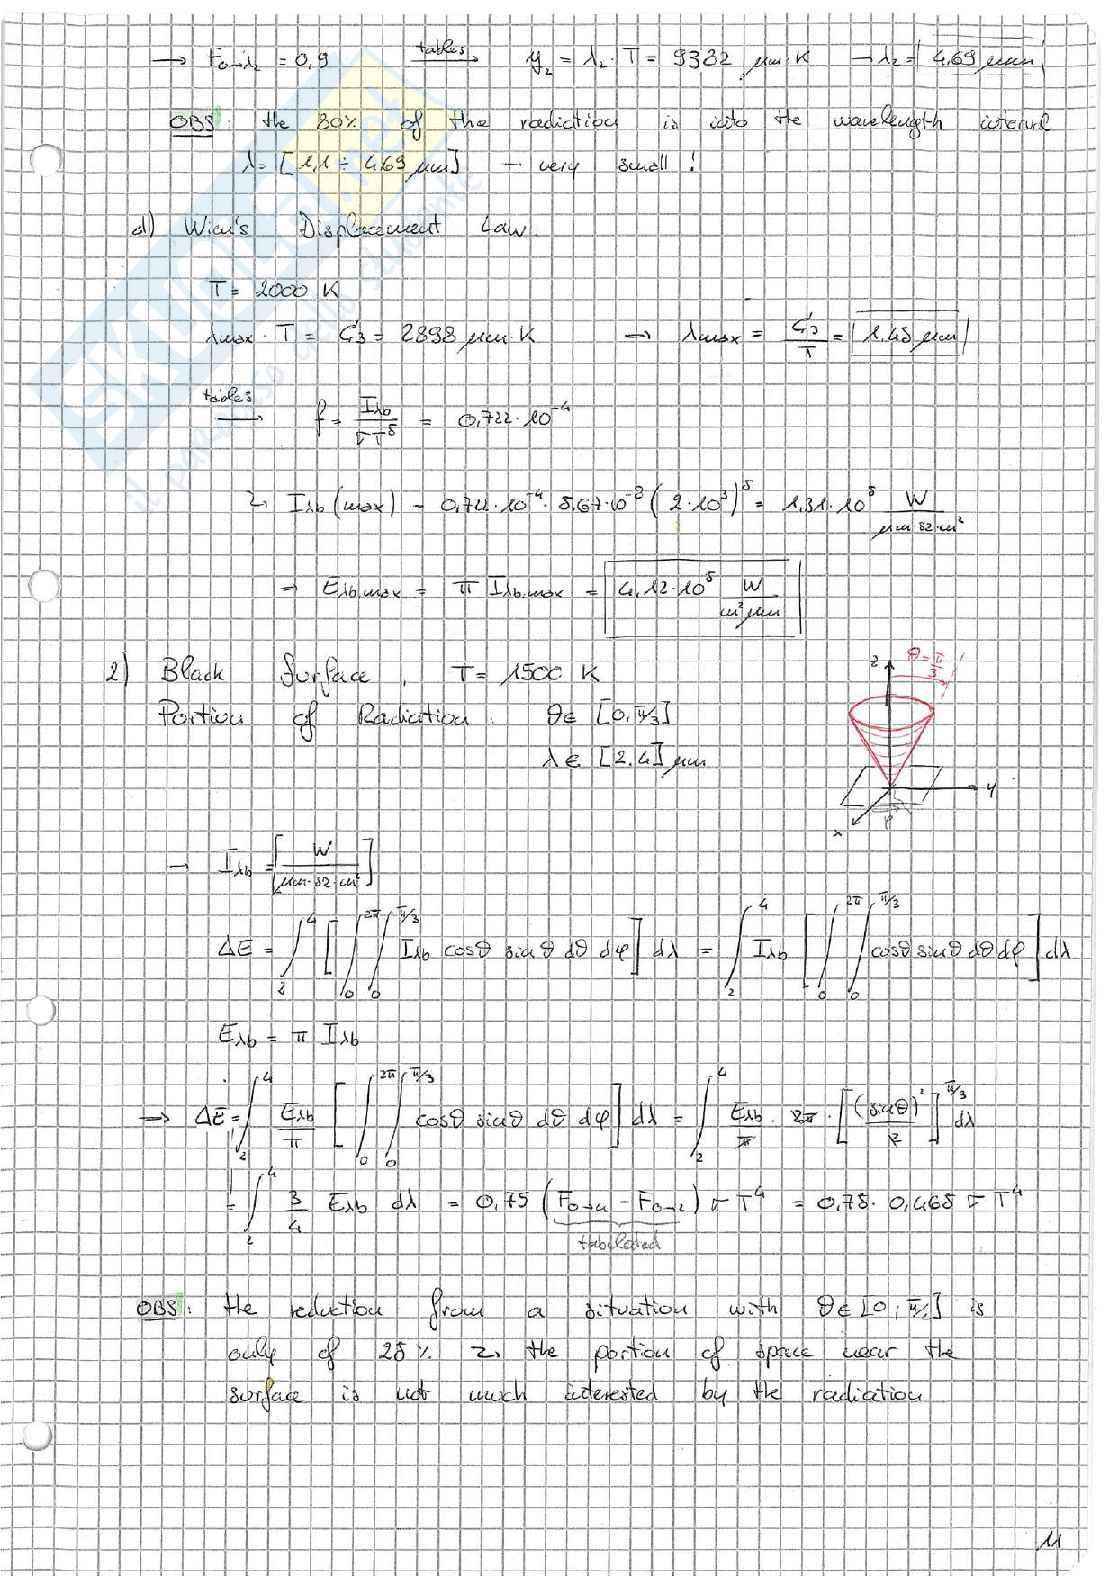 → F₀→λ₂ = 0,9 —tables→ y₂ = λ₂ · T = 9382 μm K → λ₂ = 4,69 μm
OBS: the 80% of the radiation is into the wavelength interval
λ = [1,1 ÷ 4,69 μm] → very small!
d) Wien's Displacement Law.
T = 2000 K
λmax · T = C₃ = 2898 μm K → λmax = C₃/T = 1,45 μm
—tables→ f = Iλb/σT⁵ = 0,722·10⁻⁴
↳ Iλb (max) = 0,722·10⁻⁴ · 5,67·10⁻⁸ (2·10³)⁵ = 1,31·10⁵ W/μm sr m²
→ Eλb,max = π Iλb,max = 4,12·10⁵ W/m² μm
2) Black Surface, T = 1500 K
z θ = π/3
Portion of Radiation: θ ∈ [0, π/3]
λ ∈ [2,4] μm
y
x φ
→ Iλb = [W/μm·sr·m²]
ΔE = ∫₂⁴ [∫₀^2π ∫₀^π/3 Iλb cosθ sinθ dθ dφ] dλ = ∫₂⁴ Iλb [∫₀^2π ∫₀^π/3 cosθ sinθ dθ dφ] dλ
Eλb = π Iλb
→ ΔE = ∫₂⁴ Eλb/π [∫₀^2π ∫₀^π/3 cosθ sinθ dθ dφ] dλ = ∫₂⁴ Eλb/π · 2π · [(sinθ)²/2]^π/3 dλ
= ∫₂⁴ 3/4 Eλb dλ = 0,75 (F₀→₄ − F₀→₂) σ T⁴ = 0,75 · 0,465 σ T⁴
tabulated
OBS: the reduction from a situation with θ ∈ [0, π/2] is
only of 25% ↳ the portion of space near the
surface is not much interested by the radiation
11
SKUOLA.net